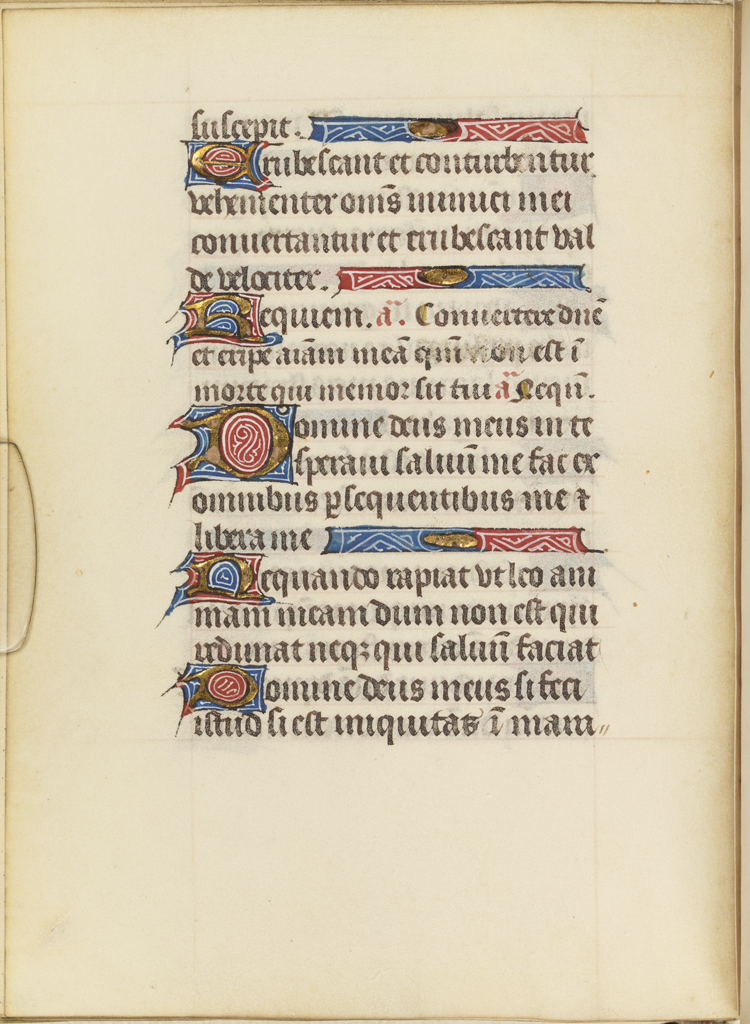 suscepit.
Erubescant et conturbentur
vehementer om̄s inimici mei
convertantur et erubescant val
de velociter.
Requiem. a͞. Convertere dn̄e
et eripe aīam meā qm̄ non est ī
morte qui memor sit tui a͞ Neqū.
Domine deus meus in te
speravi salvū me fac ex
omnibus ꝑsequentibus me ⁊
libera me
Nequando rapiat vt leo ani
mam meam dum non est qui
redimat neqꝫ qui salvū faciat
Domine deus meus si feci
istud si est iniquitas ī mani〃